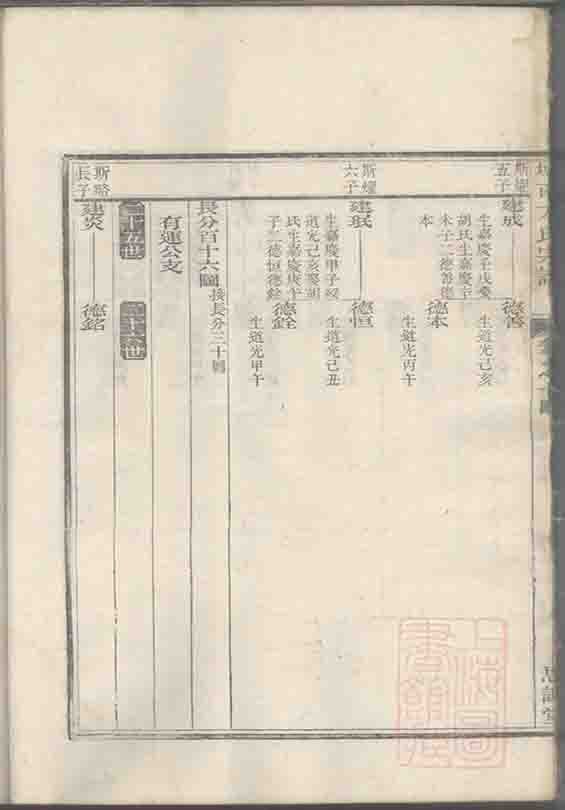 斯耀五子
建成
生嘉慶壬戌娶
胡氏生嘉慶辛
未子二德善德
本
德善
生道光己亥
德本
生道光丙午
斯耀六子
建珉
生嘉慶甲子歿
道光己亥娶胡
氏生嘉慶庚午
子二德恒德銓
德恒
生道光己丑
德銓
生道光甲午
長分百十六圖 接長分三十圖
有運公支
二十五世
二十六世
斯略長子
建炎
德銘
上海圖書館藏